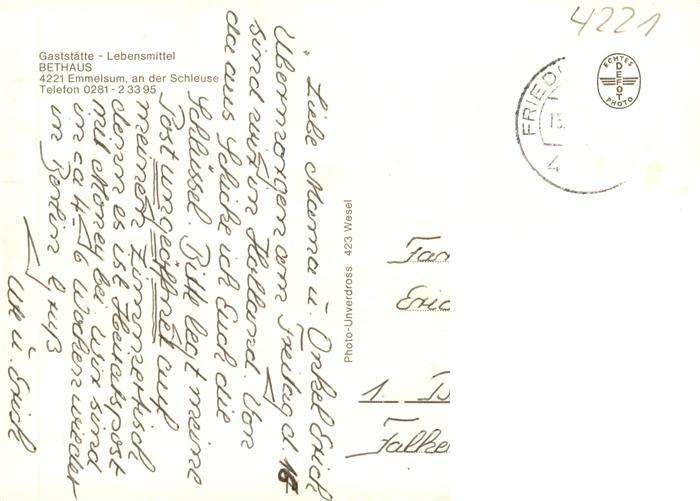 4221
Gaststätte - Lebensmittel
BETHAUS
4221 Emmelsum, an der Schleuse
Telefon 0281 - 2 33 95
ECHTES
DEFOT
PHOTO
FRIED
13.
4
Photo-Unverdross 423 Wesel
Liebe Mama u. Onkel Erich
Übermorgen am Freitag d. 15
sind wir in Holland. Von
da aus schicke ich Euch die
Schlüssel. Bitte legt meine
Post ungeöffnet auf
meinen Zimmertisch
denn es ist Heuratspost
mit Money bei. Wir sind
in ca 4-6 Wochen wieder
in Berlin
u. Erich
Fam
Eric
1. B
Falke